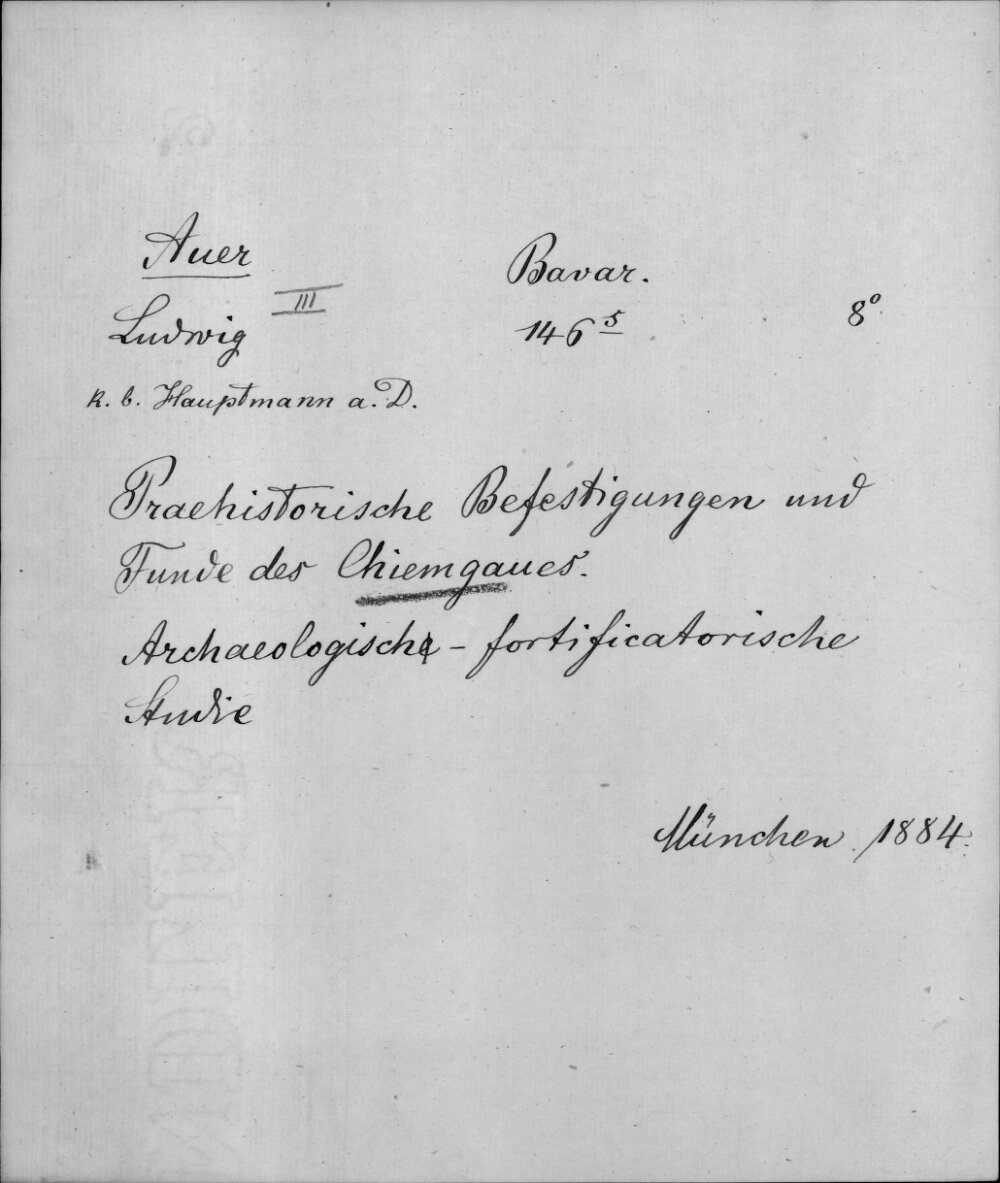 Auer
Bavar.
III
Ludwig
146 5
8°
k. b. Hauptmann a. D.
Praehistorische Befestigungen und
Funde des Chiemgaues.
Archaeologisch - fortificatorische
Studie
München 1884.